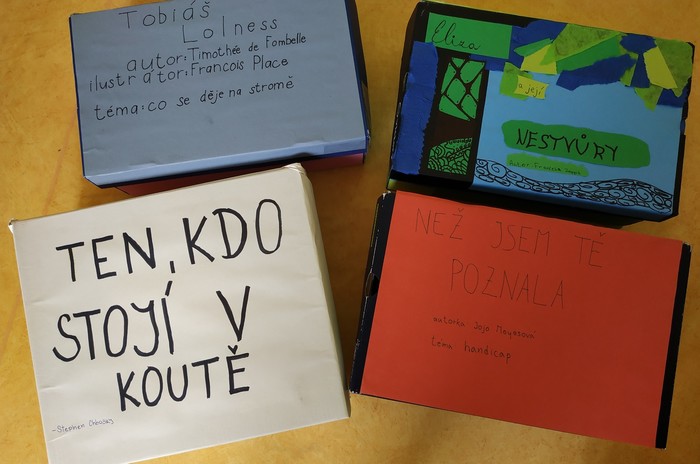 Tobiáš
Lolness
autor: Timothée de Fombelle
ilustrátor: Francois Place
téma: co se děje na stromě
Eliza
a její
NESTVŮRY
Autor:
TEN, KDO
STOJÍ V
KOUTĚ
-Stephen Chbosky
NEŽ JSEM TĚ
POZNALA
autorka Jojo Moyesová
téma handicap